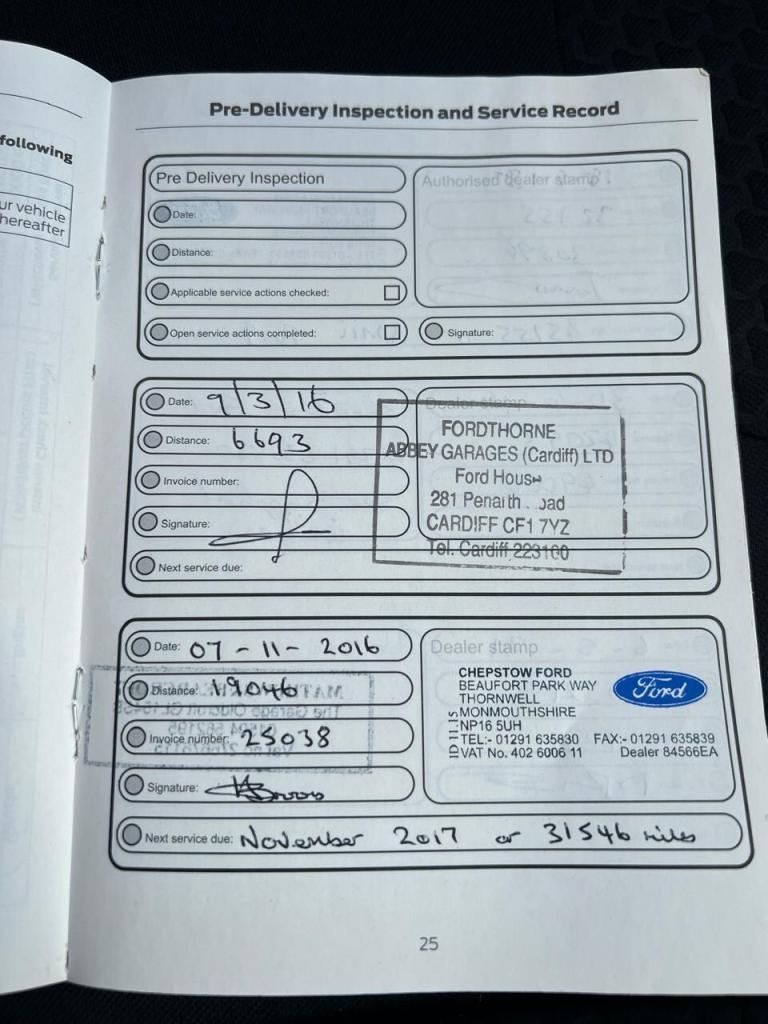 following
ur vehicle
hereafter
Pre-Delivery Inspection and Service Record
Pre Delivery Inspection
Authorised dealer stamp
Date:
Distance:
Applicable service actions checked:
Open service actions completed:
Signature:
Date: 9/3/16
Dealer stamp
Distance: 6693
Invoice number:
Signature:
Next service due:
FORDTHORNE
ABBEY GARAGES (Cardiff) LTD
Ford House
281 Penarth oad
CARDIFF CF1 7YZ
Tel. Cardiff 223100
Date: 07-11-2016
Distance: 19046
Invoice number: 25038
Signature:
Dealer stamp
CHEPSTOW FORD
BEAUFORT PARK WAY
THORNWELL
MONMOUTHSHIRE
NP16 5UH
TEL:- 01291 635830 FAX:- 01291 635839
VAT No. 402 6006 11 Dealer 84566EA
ID 11.15
Ford
Next service due: November 2017 or 31546 miles
25